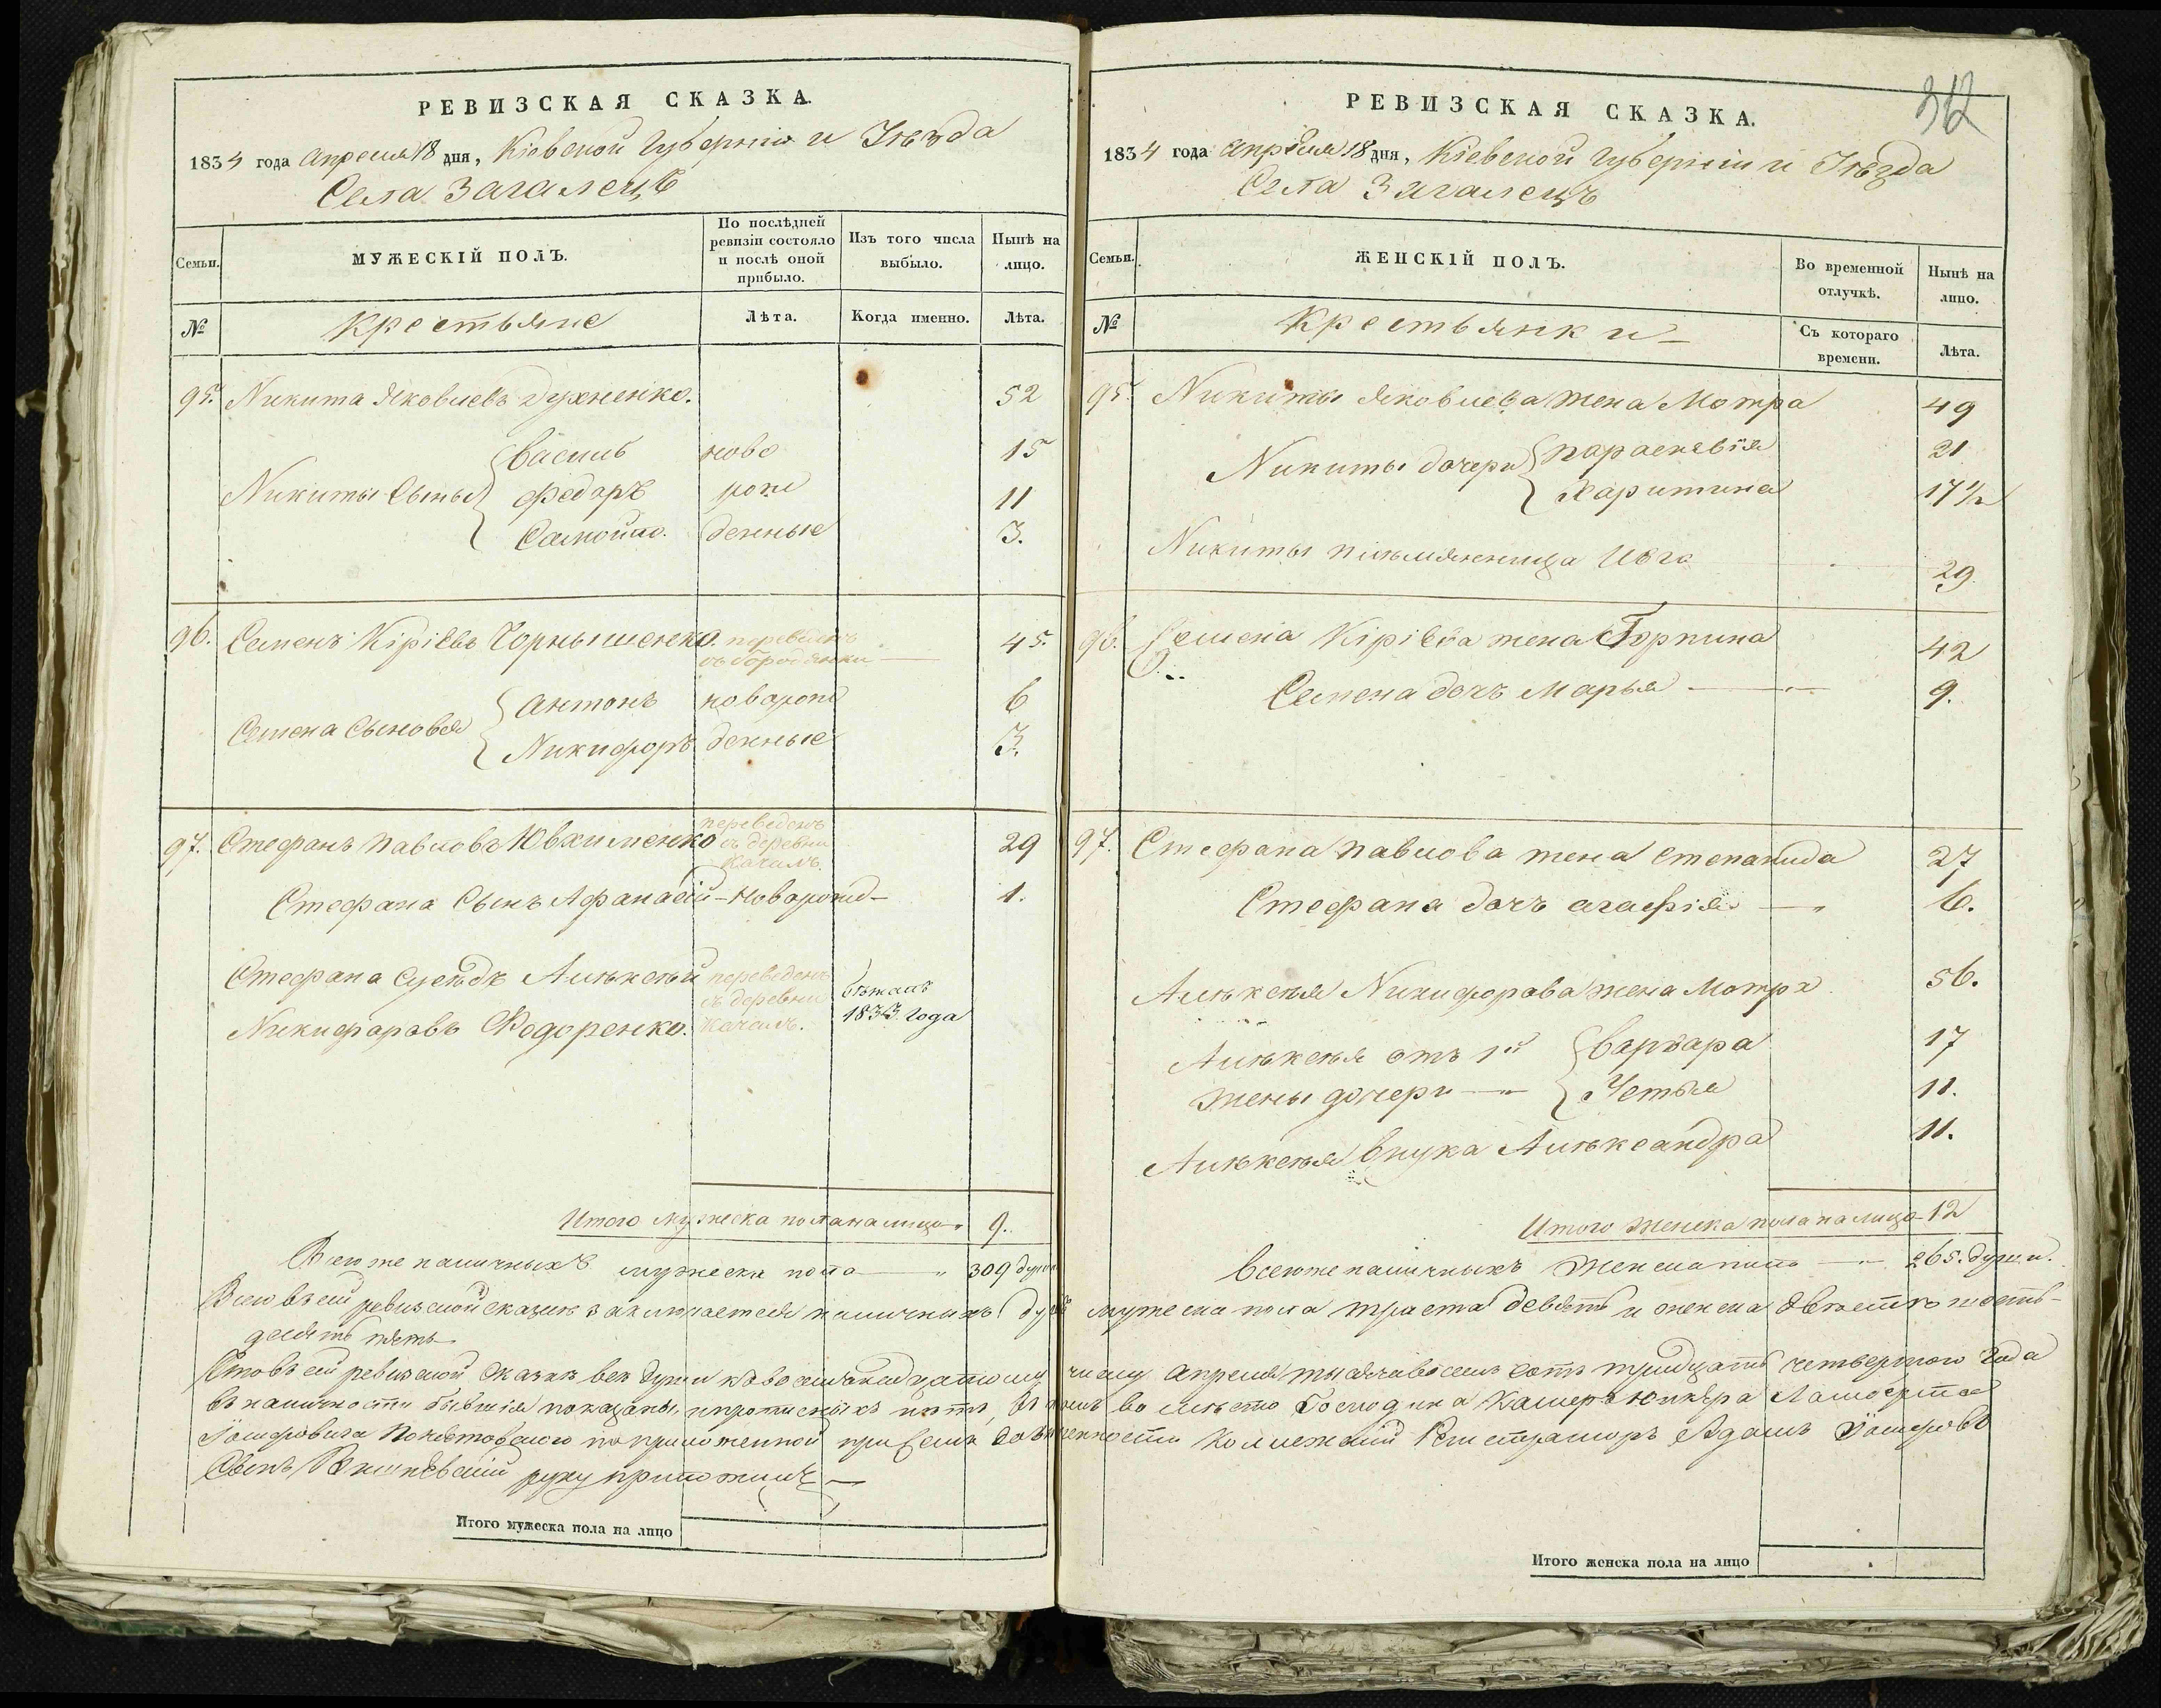 РЕВИЗСКАЯ СКАЗКА.
1834 года апреля 18 дня, Кіевской Губерніи и Уѣзда
Села Загалецъ
Семьи.
МУЖЕСКІЙ ПОЛЪ.
По послѣдней ревизіи состояло и послѣ оной прибыло.
Изъ того числа выбыло.
Нынѣ на лицо.
№
Крестьяне
Лѣта.
Когда именно.
Лѣта.
95. Никита Яковлевъ Духненко. 52
Василь ново 15
Никиты Сыны Федоръ рож 11
Самойло. денные 3.
96. Семенъ Кірієвъ Чорнышенко. переведенъ 45.
съ Бородянки
Антонъ новорож 6
Семена Сыновья
Никифоръ денные 3.
97. Стефанъ Павловъ Ювхименко переведенъ съ деревни Качалъ. 29
Стефана Сынъ Афанасій - новорожд - 1.
Стефана Сусѣдъ Алѣксѣй переведенъ съ деревни Качалъ. бѣжалъ 1833 года
Никифоровъ Федоренко.
Итого мужеска пола на лицо 9.
Всего же наличныхъ мужеска пола 309 душ
РЕВИЗСКАЯ СКАЗКА.
312
1834 года апрѣля 18 дня, Кіевской Губерніи и Уѣзда
Села Загалецъ
Семьи.
ЖЕНСКІЙ ПОЛЪ.
Во временной отлучкѣ.
Нынѣ на лицо.
№
Крестьянки
Съ котораго времени.
Лѣта.
95. Никиты Яковлева жена Мотра 49
Никиты дочери Параскевія 21
Харитина 17 1/2
Никиты племянница Ивга 29
96. Семена Кірієва жена Горпина 42
Семена дочъ Марья 9.
97. Стефана Павлова жена Степанида 27
Стефана дочъ Агафія 6.
Алѣксѣя Никифорова жена Мотра 56.
Алѣксѣя отъ 1й Варвара 17
жены дочери Устья 11.
Алѣксѣя внука Алѣксандра 11.
Итого женска пола на лицо 12
Всего же наличныхъ женска пола 265. душ.
Всего въ сей ревизской сказкѣ заключается наличныхъ душъ мужеска пола триста девять и женска двѣстѣ шесть-
десятъ пять
Что въ сей ревизской сказкѣ всѣ души къ восемнадцатому числу апреля тысяча восемь сотъ тридцать четвертого Года
въ наличности бывшія показаны, и прописныхъ нѣтъ, въ томъ во мѣсто Господина Камеръ Юнкѣра
по приложенной при семъ довѣренности Колежскій Регистраторъ Адамъ
Сынъ руку приложилъ
Итого мужеска пола на лицо
Итого женска пола на лицо